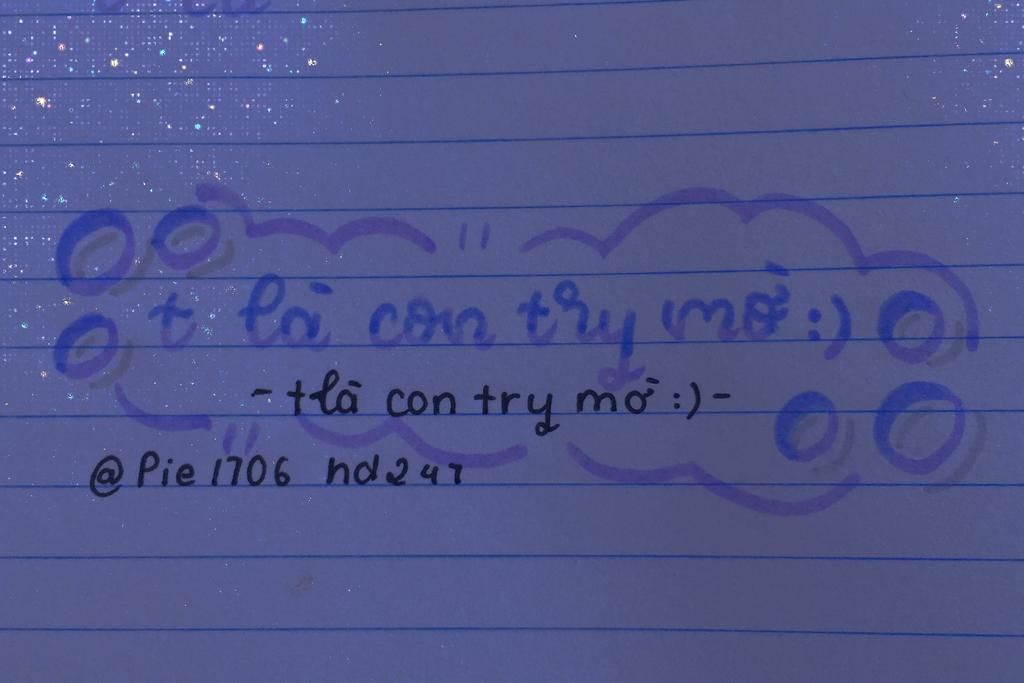 t là con try mờ :)
- t là con try mờ :) -
@Pie1706 hd247